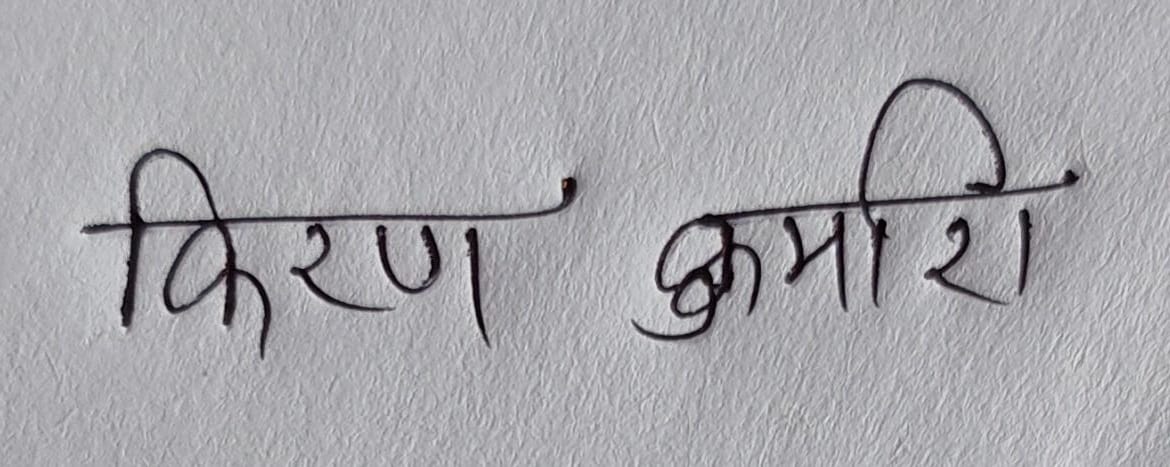 किरण कुमारी